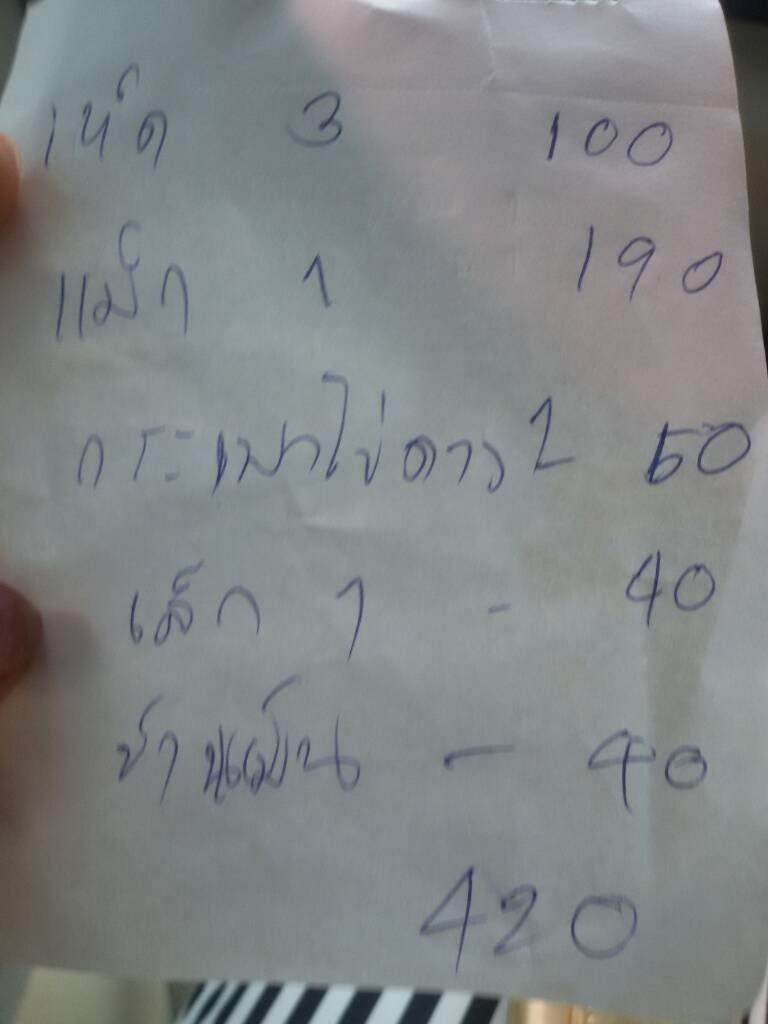 เห็ด 3 100
แม็ก 1 190
กระเพาไข่ดาว 1 50
เล็ก 1 - 40
- 40
420